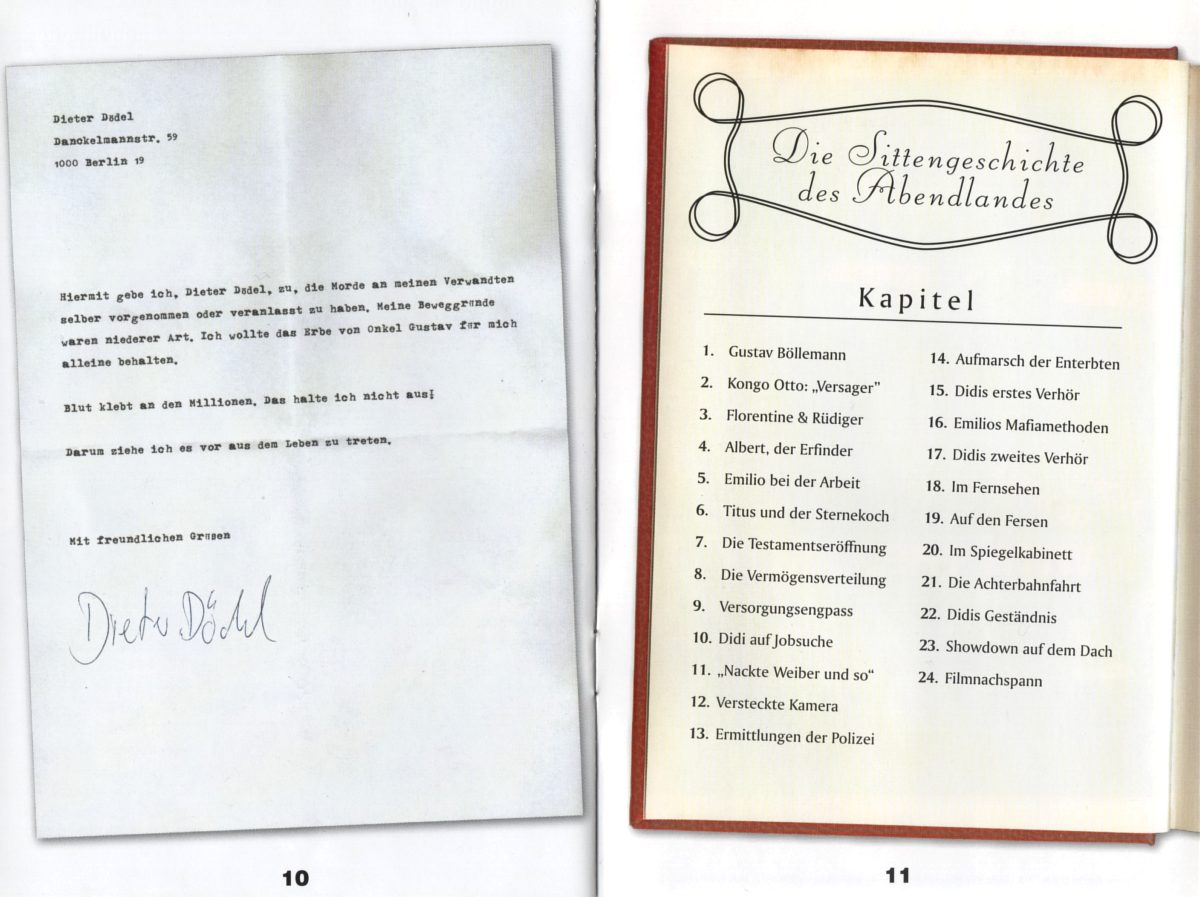 Dieter Dödel
Danckelmannstr. 59
1000 Berlin 19
Hiermit gebe ich, Dieter Dödel, zu, die Morde an meinen Verwandten
selber vorgenommen oder veranlasst zu haben. Meine Beweggründe
waren niederer Art. Ich wollte das Erbe von Onkel Gustav für mich
alleine behalten.
Blut klebt an den Millionen. Das halte ich nicht aus!
Darum ziehe ich es vor aus dem Leben zu treten.
Mit freundlichen Grüsen
Dieter Dödel
10
Die Sittengeschichte
des Abendlandes
Kapitel
1. Gustav Böllemann
2. Kongo Otto: „Versager”
3. Florentine & Rüdiger
4. Albert, der Erfinder
5. Emilio bei der Arbeit
6. Titus und der Sternekoch
7. Die Testamentseröffnung
8. Die Vermögensverteilung
9. Versorgungsengpass
10. Didi auf Jobsuche
11. „Nackte Weiber und so“
12. Versteckte Kamera
13. Ermittlungen der Polizei
14. Aufmarsch der Enterbten
15. Didis erstes Verhör
16. Emilios Mafiamethoden
17. Didis zweites Verhör
18. Im Fernsehen
19. Auf den Fersen
20. Im Spiegelkabinett
21. Die Achterbahnfahrt
22. Didis Geständnis
23. Showdown auf dem Dach
24. Filmnachspann
11